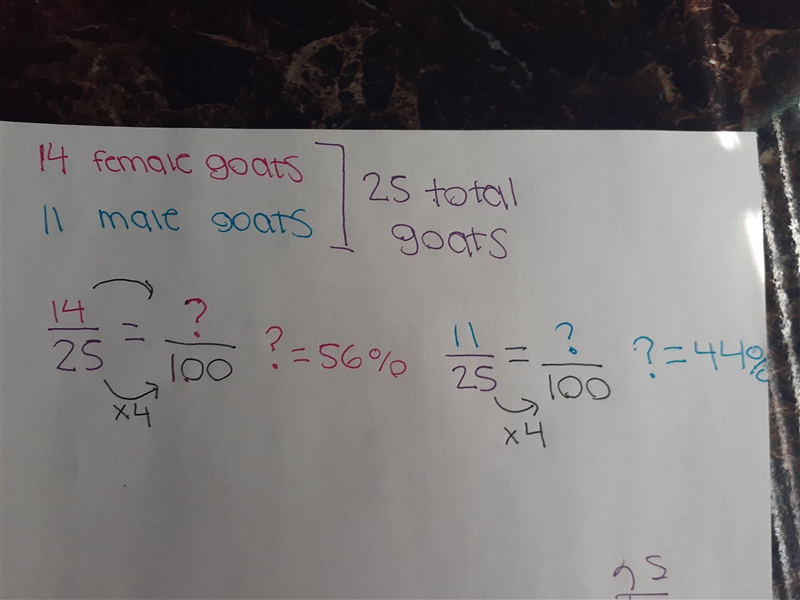 14 female goats
11 male goats
25 total
goats
14/25 = ?/100 ?=56%
x4
11/25 = ?/100 ?=44%
x4
25